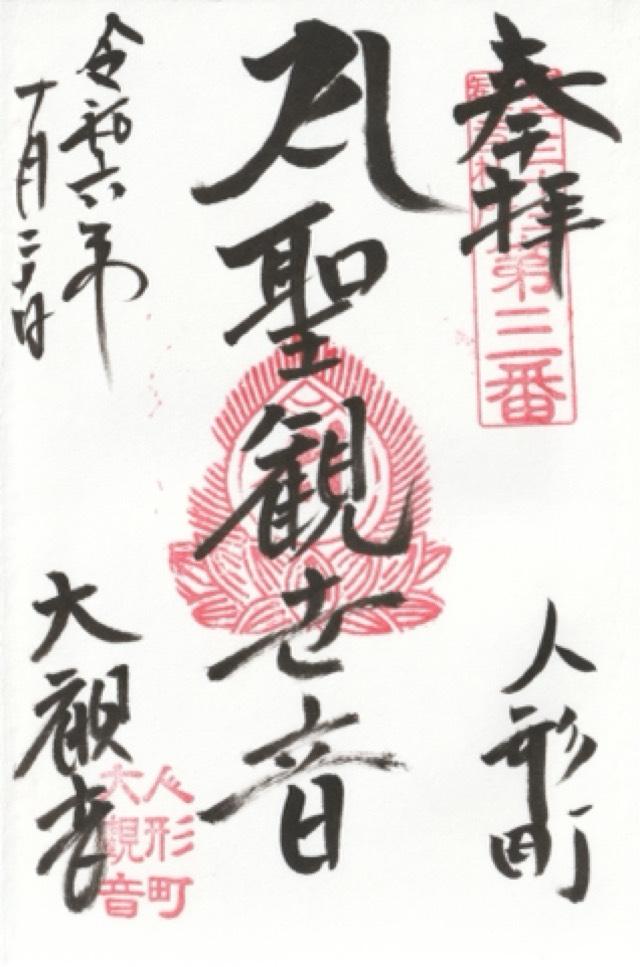 奉拝
第三番
人形町
聖観世音
令和六年
十月二日
大観音
人形町
大観音